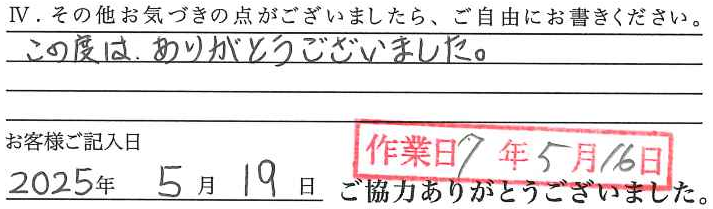 Ⅳ．その他お気づきの点がございましたら、ご自由にお書きください。
この度は、ありがとうございました。
お客様ご記入日
作業日 7年5月16日
2025年 5月19日
ご協力ありがとうございました。